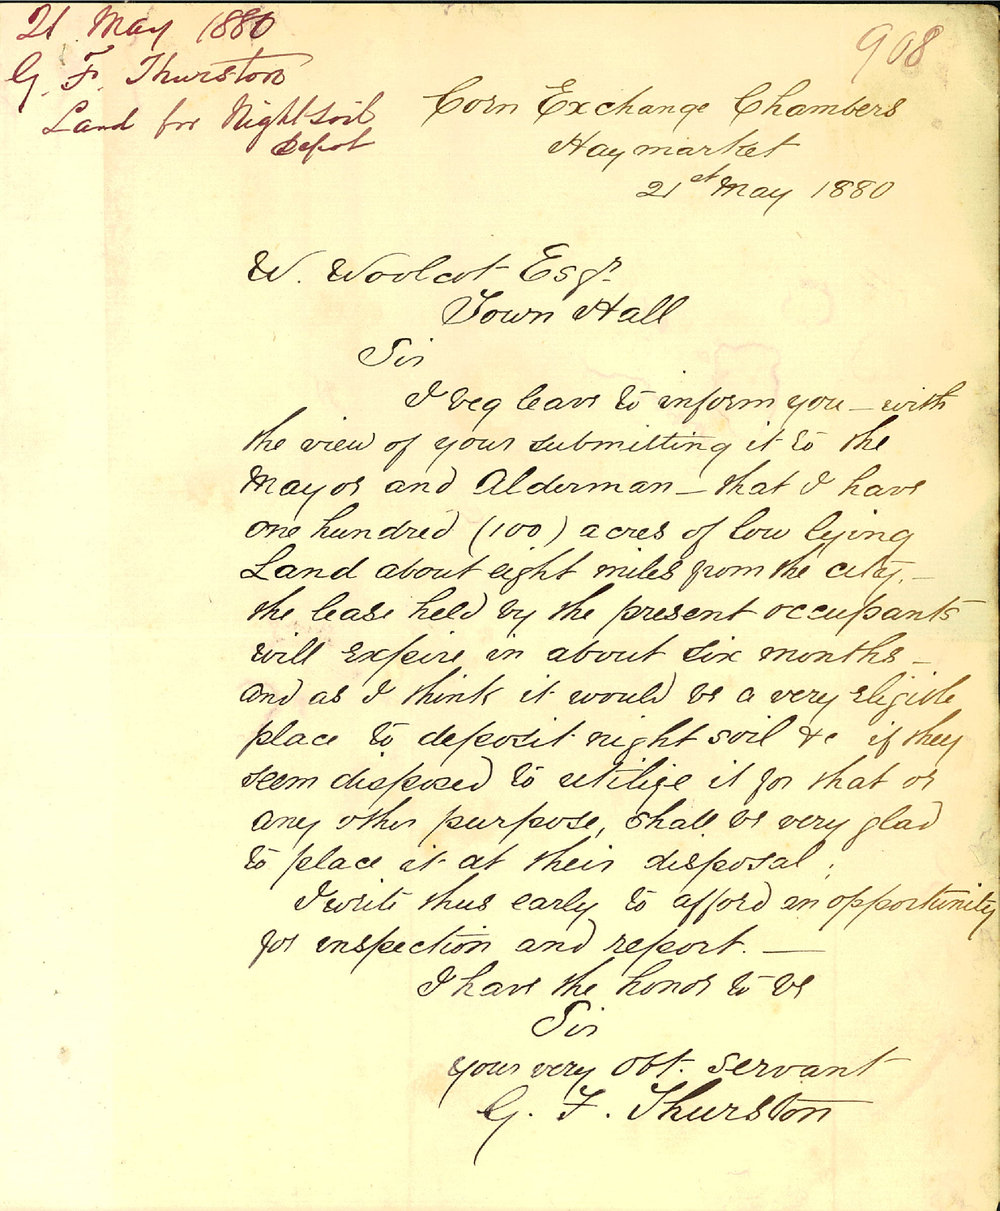 21 May 1880
G. F. Thurston
Land for Nightsoil
Depot
908
Corn Exchange Chambers
Haymarket
21st May 1880
W. Woolcot Esqr.
Town Hall
Sir
I beg leave to inform you – with
the view of your submitting it to the
Mayor and Alderman – that I have
one hundred (100) acres of low lying
Land about eight miles from the city, –
the lease held by the present occupants
will expire in about six months –
and as I think it would be a very eligible
place to deposit night soil &c if they
seem disposed to utilize it for that or
any other purpose, shall be very glad
to place it at their disposal;
I write thus early to afford an opportunity
for inspection and report. —
I have the honor to be
Sir
your very obt. servant
G. F. Thurston